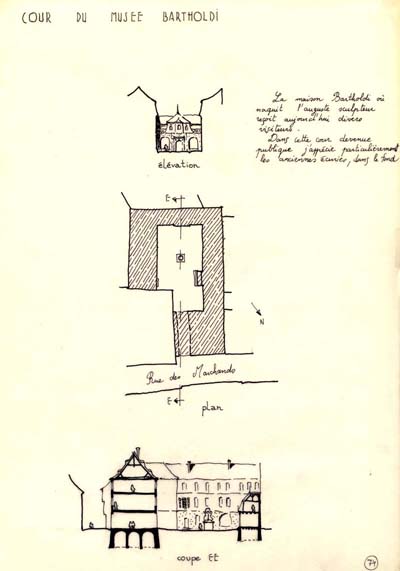 COUR DU MUSEE BARTHOLDI
La maison Bartholdi où
naquit l'auguste sculpteur
reçoit aujourd'hui divers
visiteurs.
Dans cette cour devenue
publique j'apprécie particulièrement
les anciennes écuries, dans le fond
élévation
E
N
Rue des Marchands
E
plan
coupe EE
74